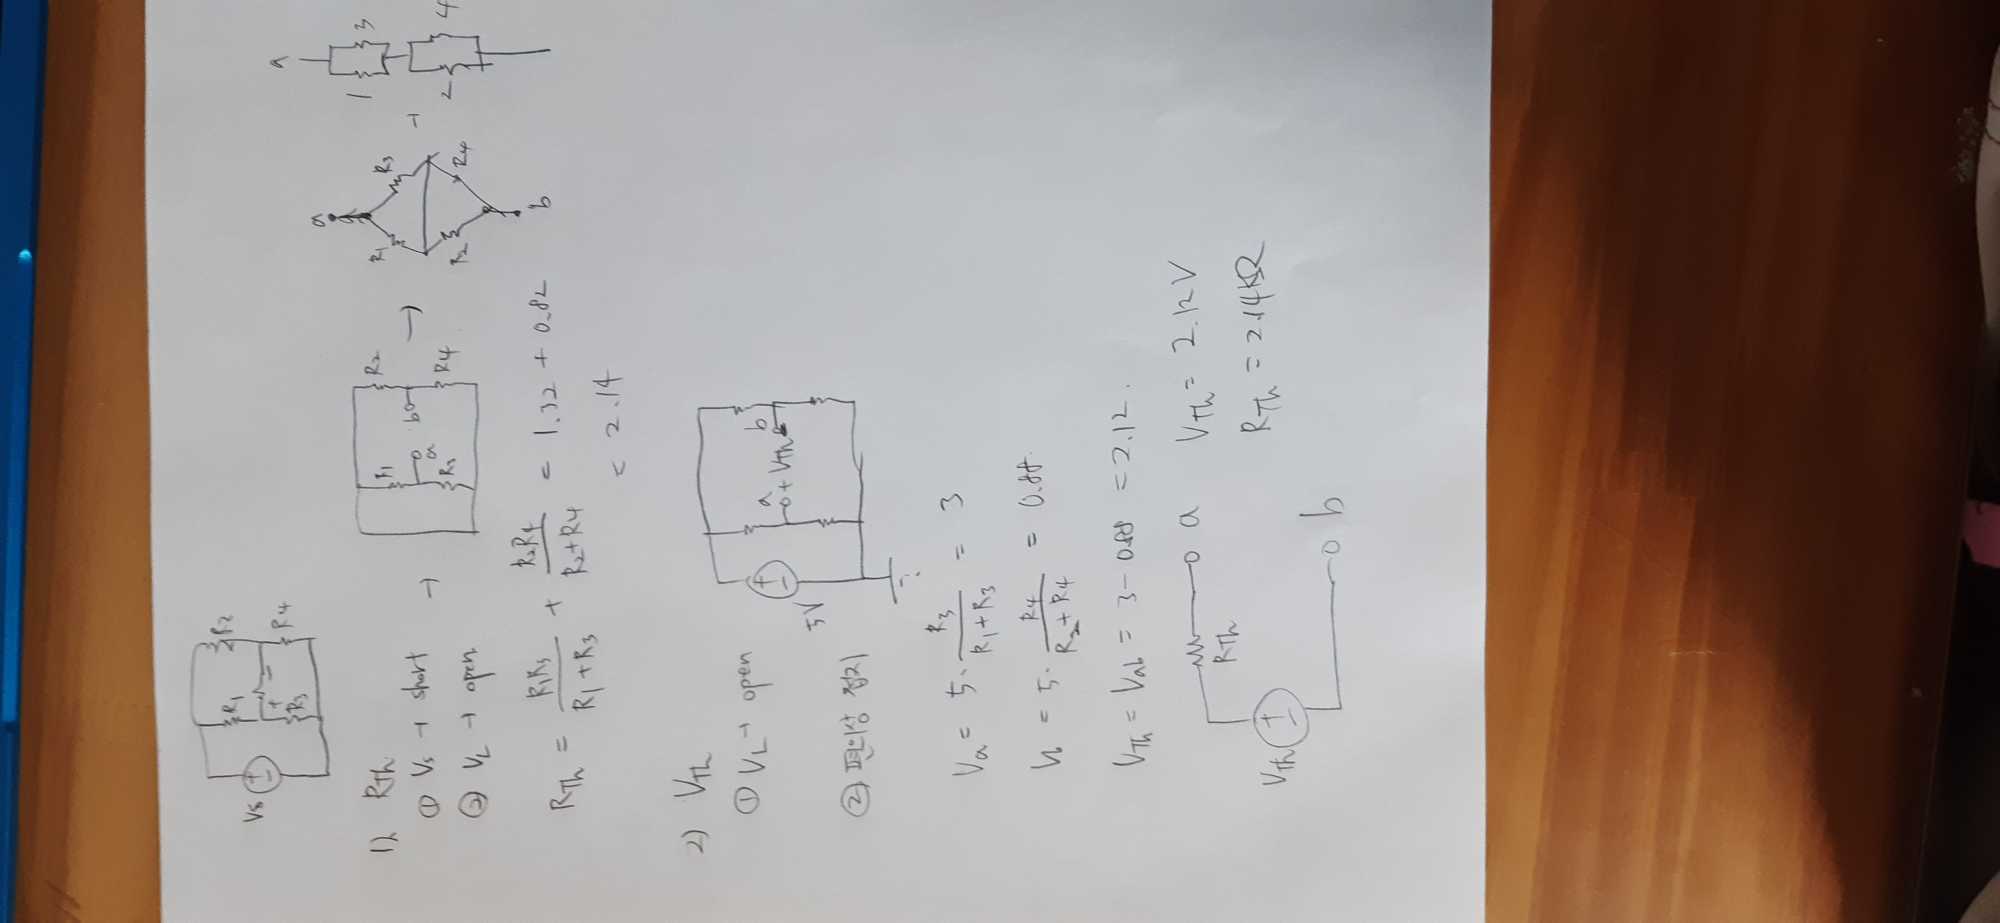 Vs R1 R2 + - R3 R4
1) RTh
① Vs → short →
② VL → open
R1 a R3 b R2 R4 →
a R1 R3 R2 R4 b →
a 1 3 2 4
RTh = R1R3/(R1+R3) + R2R4/(R2+R4) = 1.32 + 0.82
= 2.14
2) VTh
① VL → open
② 편의상 접지
5V + - a + VTh b
Va = 5 · R3/(R1+R3) = 3
Vb = 5 · R4/(R2+R4) = 0.88
VTh = Vab = 3 - 0.88 = 2.12.
VTh + - RTh a b
VTh = 2.12V
RTh = 2.14kΩ